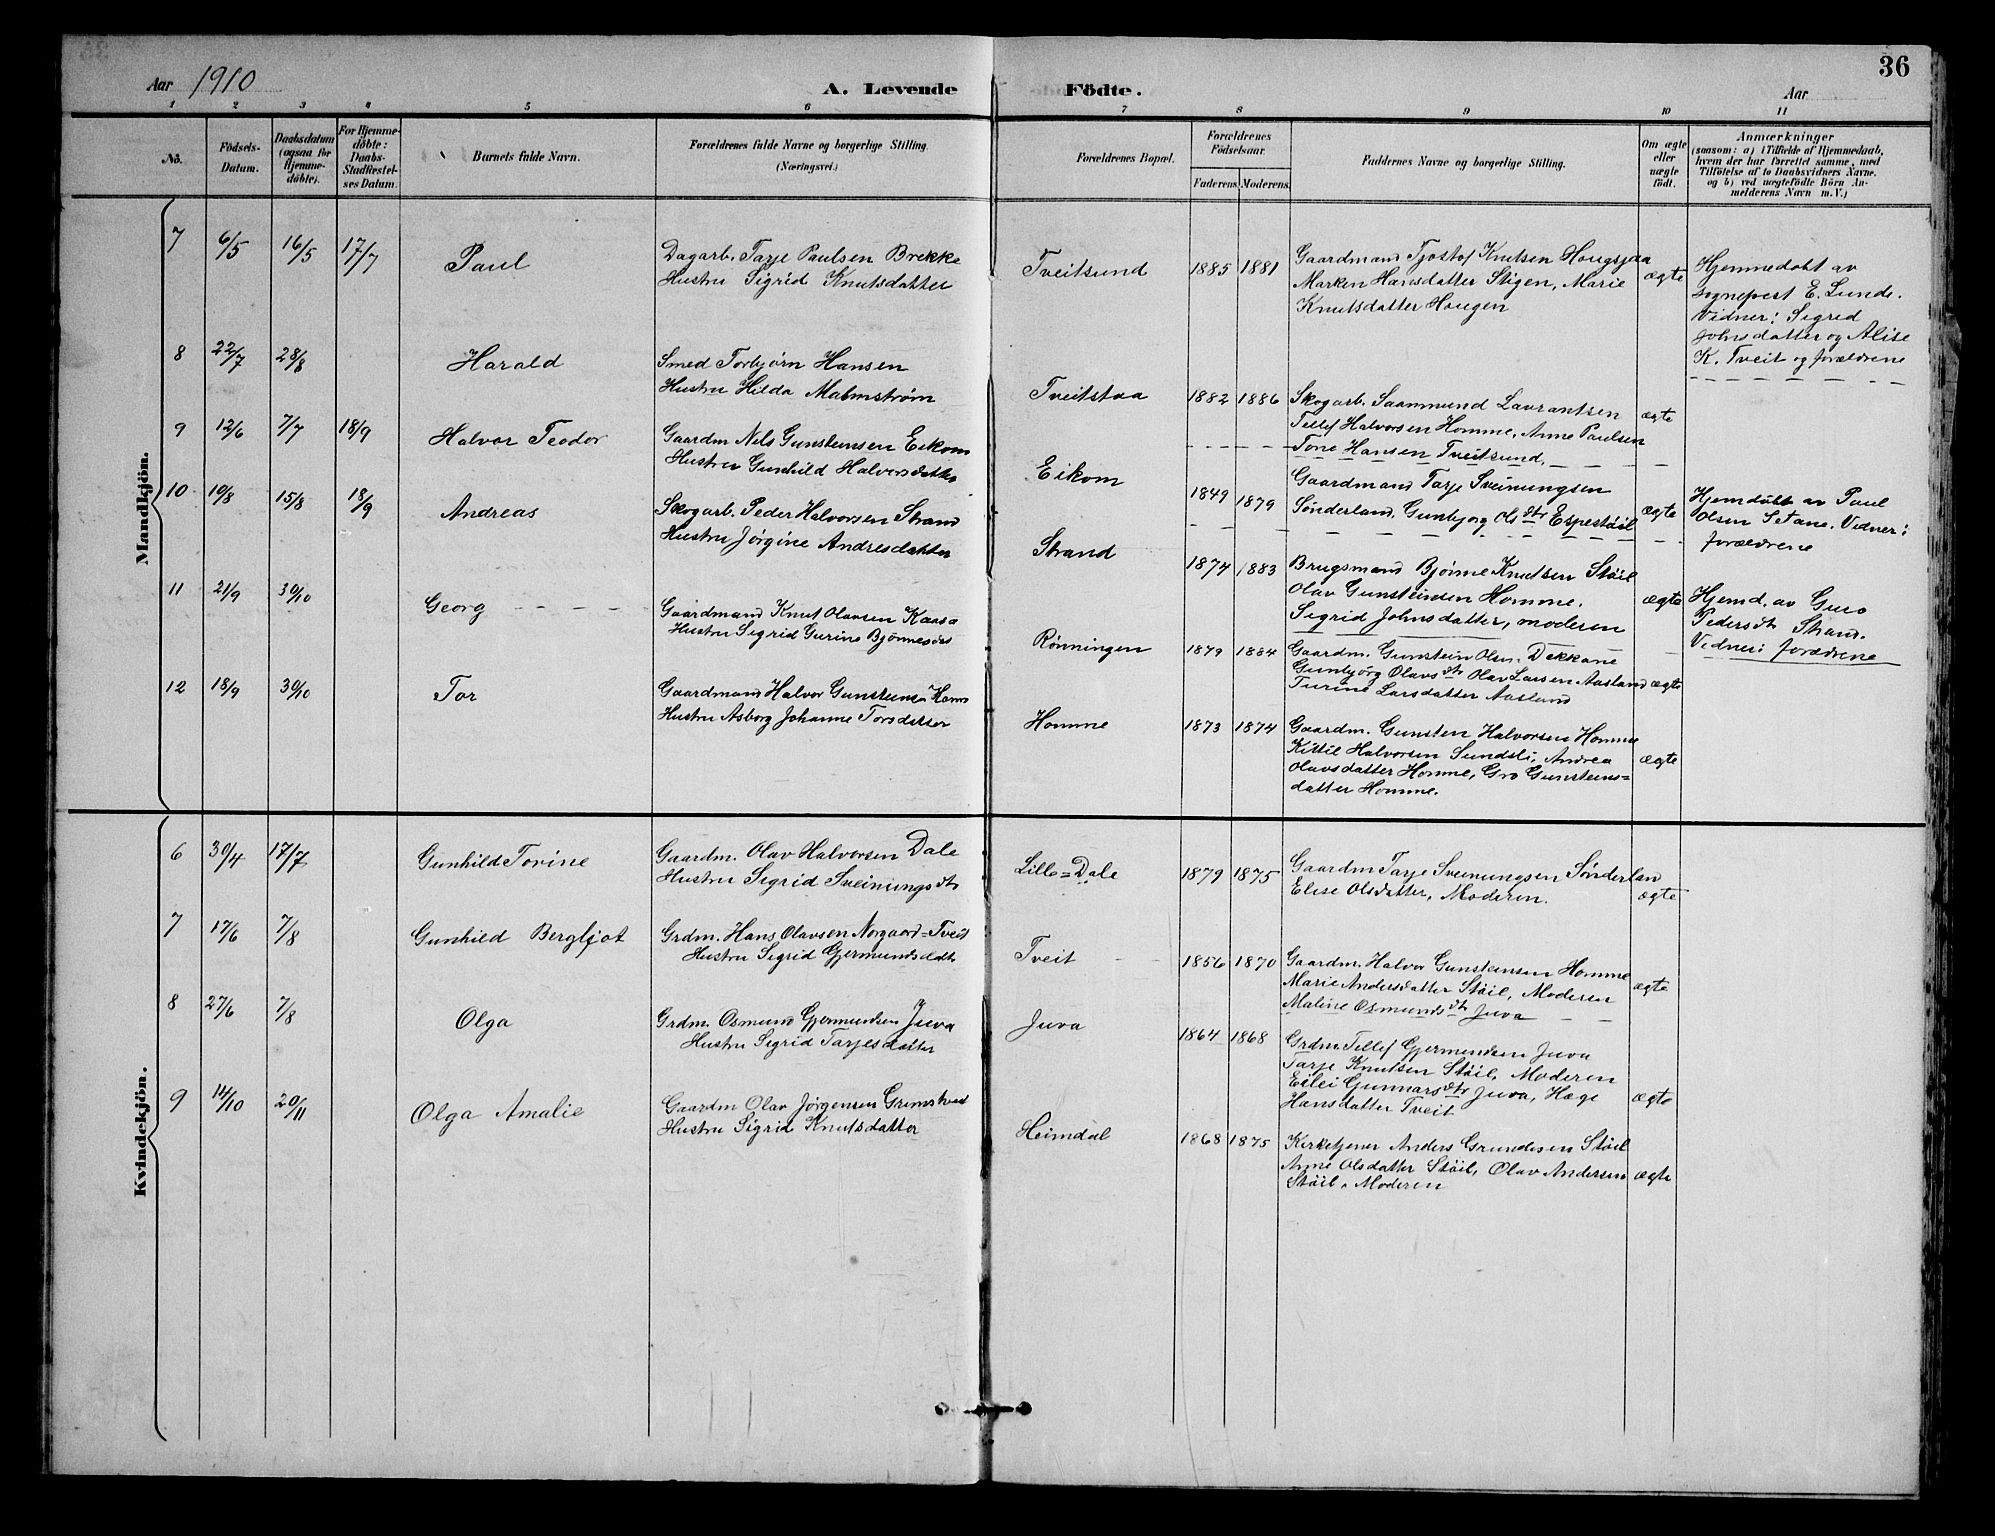 36
Aar 1910 A. Levende Födte. Aar
1 2 3 4 5 6 7 8 9 10 11
No.
Födsels-Datum.
Daabsdatum (ogsaa for Hjemme-döbte).
For Hjemme-döbte: Daabs-Stadfæstel-ses Datum.
Barnets fulde Navn.
Forældrenes fulde Navne og borgerlige Stilling.
(Næringsvei.)
Forældrenes Bopæl.
Forældrenes Födselsaar.
Faderens. Moderens.
Faddernes Navne og borgerlige Stilling.
Om ægte eller uægte födt.
Anmærkninger
(saasom: a) i Tilfælde af Hjemmedaab,
hvem der har forrettet samme, med
Tilföielse af to Daabsvidners Navne.
og b) ved uægtefödte Börn An-
melderens Navn m. V.)
Mandkjön.
7 6/5 16/5 17/7 Paul
Dagarb. Tarje Paulsen Brekke
Hustru Sigrid Knutsdatter
Tveitsund 1885 1881
Gaardmand Tjostof Knutsen Hougsjaa
Marken Hansdatter Stigen, Marie
Knutsdatter Haugen
ægte
Hjemmedøbt av
sognepræst E. Lunde.
Vidner: Sigrid
Johnsdatter og Alise
K. Tveit og forældrene
8 22/7 28/8 Harald
Smed Torbjørn Hansen
Hustru Hilda Malmstrøm
Tveitstaa 1882 1886
Skogarb. Saamund Lavrantsen
Tellef Halvorsen Homme, Anne Paulsen
Tone Hansen Tveitsund.
ægte
9 12/6 7/7 18/9 Halvor Teodor
Gaardm Nils Gunsteinsen Eikom
Hustru Gunhild Halvorsdatter
Eikom 1849 1879
Gaardmand Tarje Sveinungsen
Sønderland, Gunbjorg Olsdtr Espestøil
ægte
Hjemdøbt av Paul
Olsen Setane. Vidner:
forældrene
10 10/8 15/8 18/9 Andreas
Skogarb. Peder Halvorsen Strand
Hustru Jørgine Andresdatter
Strand 1874 1883
Brugsmand Bjørne Knutsen Støil
Olav Gunsteinsen Homme.
Sigrid Johnsdatter, moderen
ægte
Hjemd. av Guro
Pedersdtr Strand.
Vidner: forældrene
11 21/9 30/10 Georg
Gaardmand Knut Olavsen Kaasa
Hustru Sigrid Gurine Bjønnesdtr
Rønningen 1879 1884
Gaardm. Gunstein Olsn. Dekkane
Gunbjörg Olavsdtr Olav Larsen Aasland
Turine Larsdatter Aasland
ægte
12 18/9 30/10 Tor
Gaardmand Halvor Gunsteinsn Homme
Hustru Asborg Johanne Torsdatter
Homme 1873 1874
Gaardm. Gunsten Halvorsen Homme
Kittil Halvorsen Sundsli, Andrea
Olavsdatter Homme, Gro Gunsteins=
datter Homme.
ægte
Kvindekjön.
6 30/4 17/7 Gunhild Torine
Gaardm. Olav Halvorsen Dale
Hustru Sigrid Sveinungsdtr
Lille=Dale 1879 1875
Gaardm Tarje Sveinungsen Sönderlan
Elise Olsdatter, Moderen.
ægte
7 17/6 7/8 Gunhild Bergljot
Grdm. Hans Olavsen Norgaard=Tveit
Hustru Sigrid Gjermundsdtr
Tveit 1856 1870
Gaardm. Halvor Gunsteinsen Homme
Marie Andersdatter Støil, Moderen
Maline Osmundsdtr Juva
ægte
8 27/6 7/8 Olga
Grdm. Osmund Gjermundsen Juva
Hustru Sigrid Tarjesdatter
Juva 1864 1868
Grdm. Tellef Gjermundsen Juva
Tarje Knutsen Støil, Moderen
Eilei Gunnarsdtr Juva, Hæge
Hansdatter Tveit
ægte
9 14/10 20/11 Olga Amalie
Gaardm Olav Jørgensen Grimstveit
Hustru Sigrid Knutsdatter
Heimdal 1868 1875
Kirketjener Anders Grundesen Støil
Anne Olsdatter Støil, Olav Andersen
Støil, Moderen
ægte